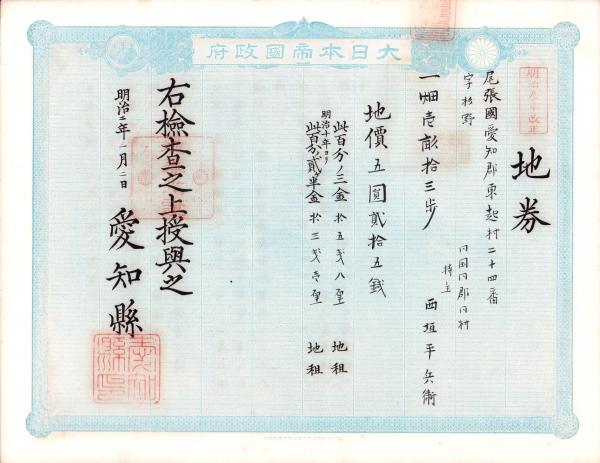 大日本帝國政府
地券
明治年改正
尾張國愛知郡東起村二十四番
字杉野
一畑壱畝拾三歩
同国同郡同村
持主 西垣平兵衛
地價五圓貳拾五錢
此百分ノ三金拾五銭八厘 地租
明治十年ヨリ
此百分ノ貳半金拾三銭壱厘 地租
右檢査之上授與之
明治十二年一月二日
愛知縣
愛知縣印